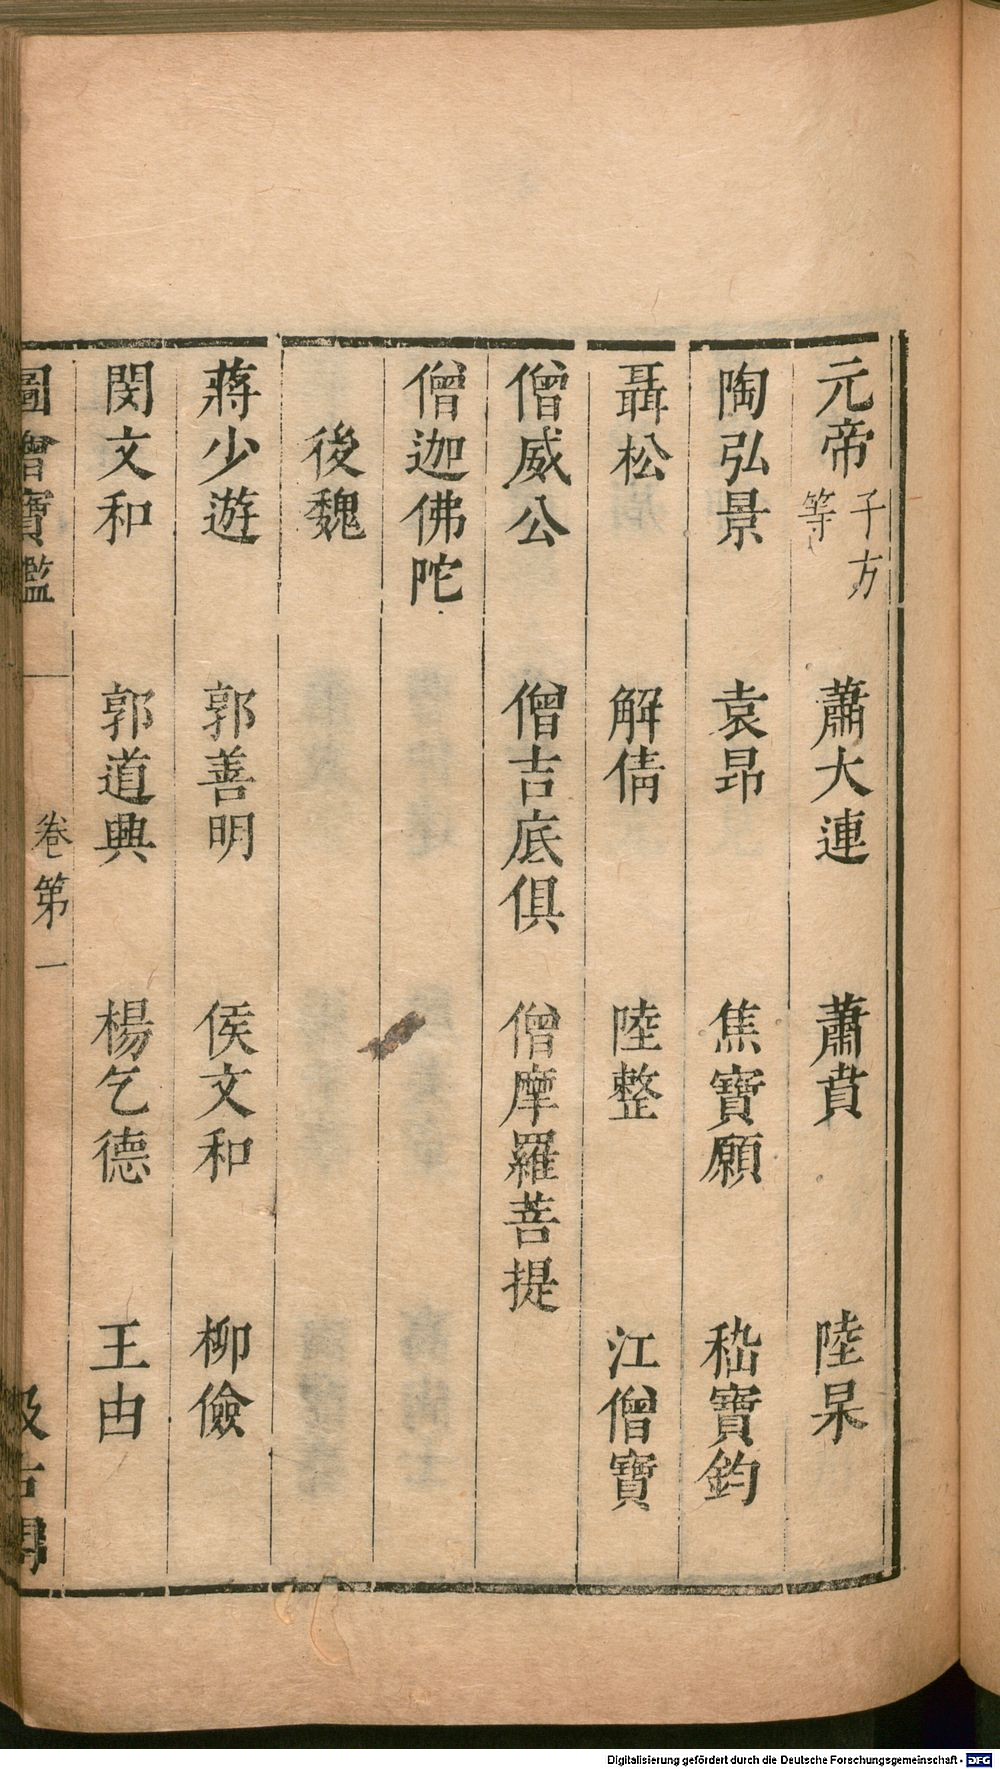 元帝 子方等 蕭大連 蕭賁 陸杲
陶弘景 袁昂 焦寶願 嵇寶鈞
聶松 解倩 陸整 江僧寶
僧威公 僧吉底俱 僧摩羅菩提
僧迦佛陀
後魏
蔣少遊 郭善明 侯文和 柳儉
閔文和 郭道興 楊乞德 王由
圖繪寶鑑 卷第一 汲古閣
Digitalisierung gefördert durch die Deutsche Forschungsgemeinschaft - DFG